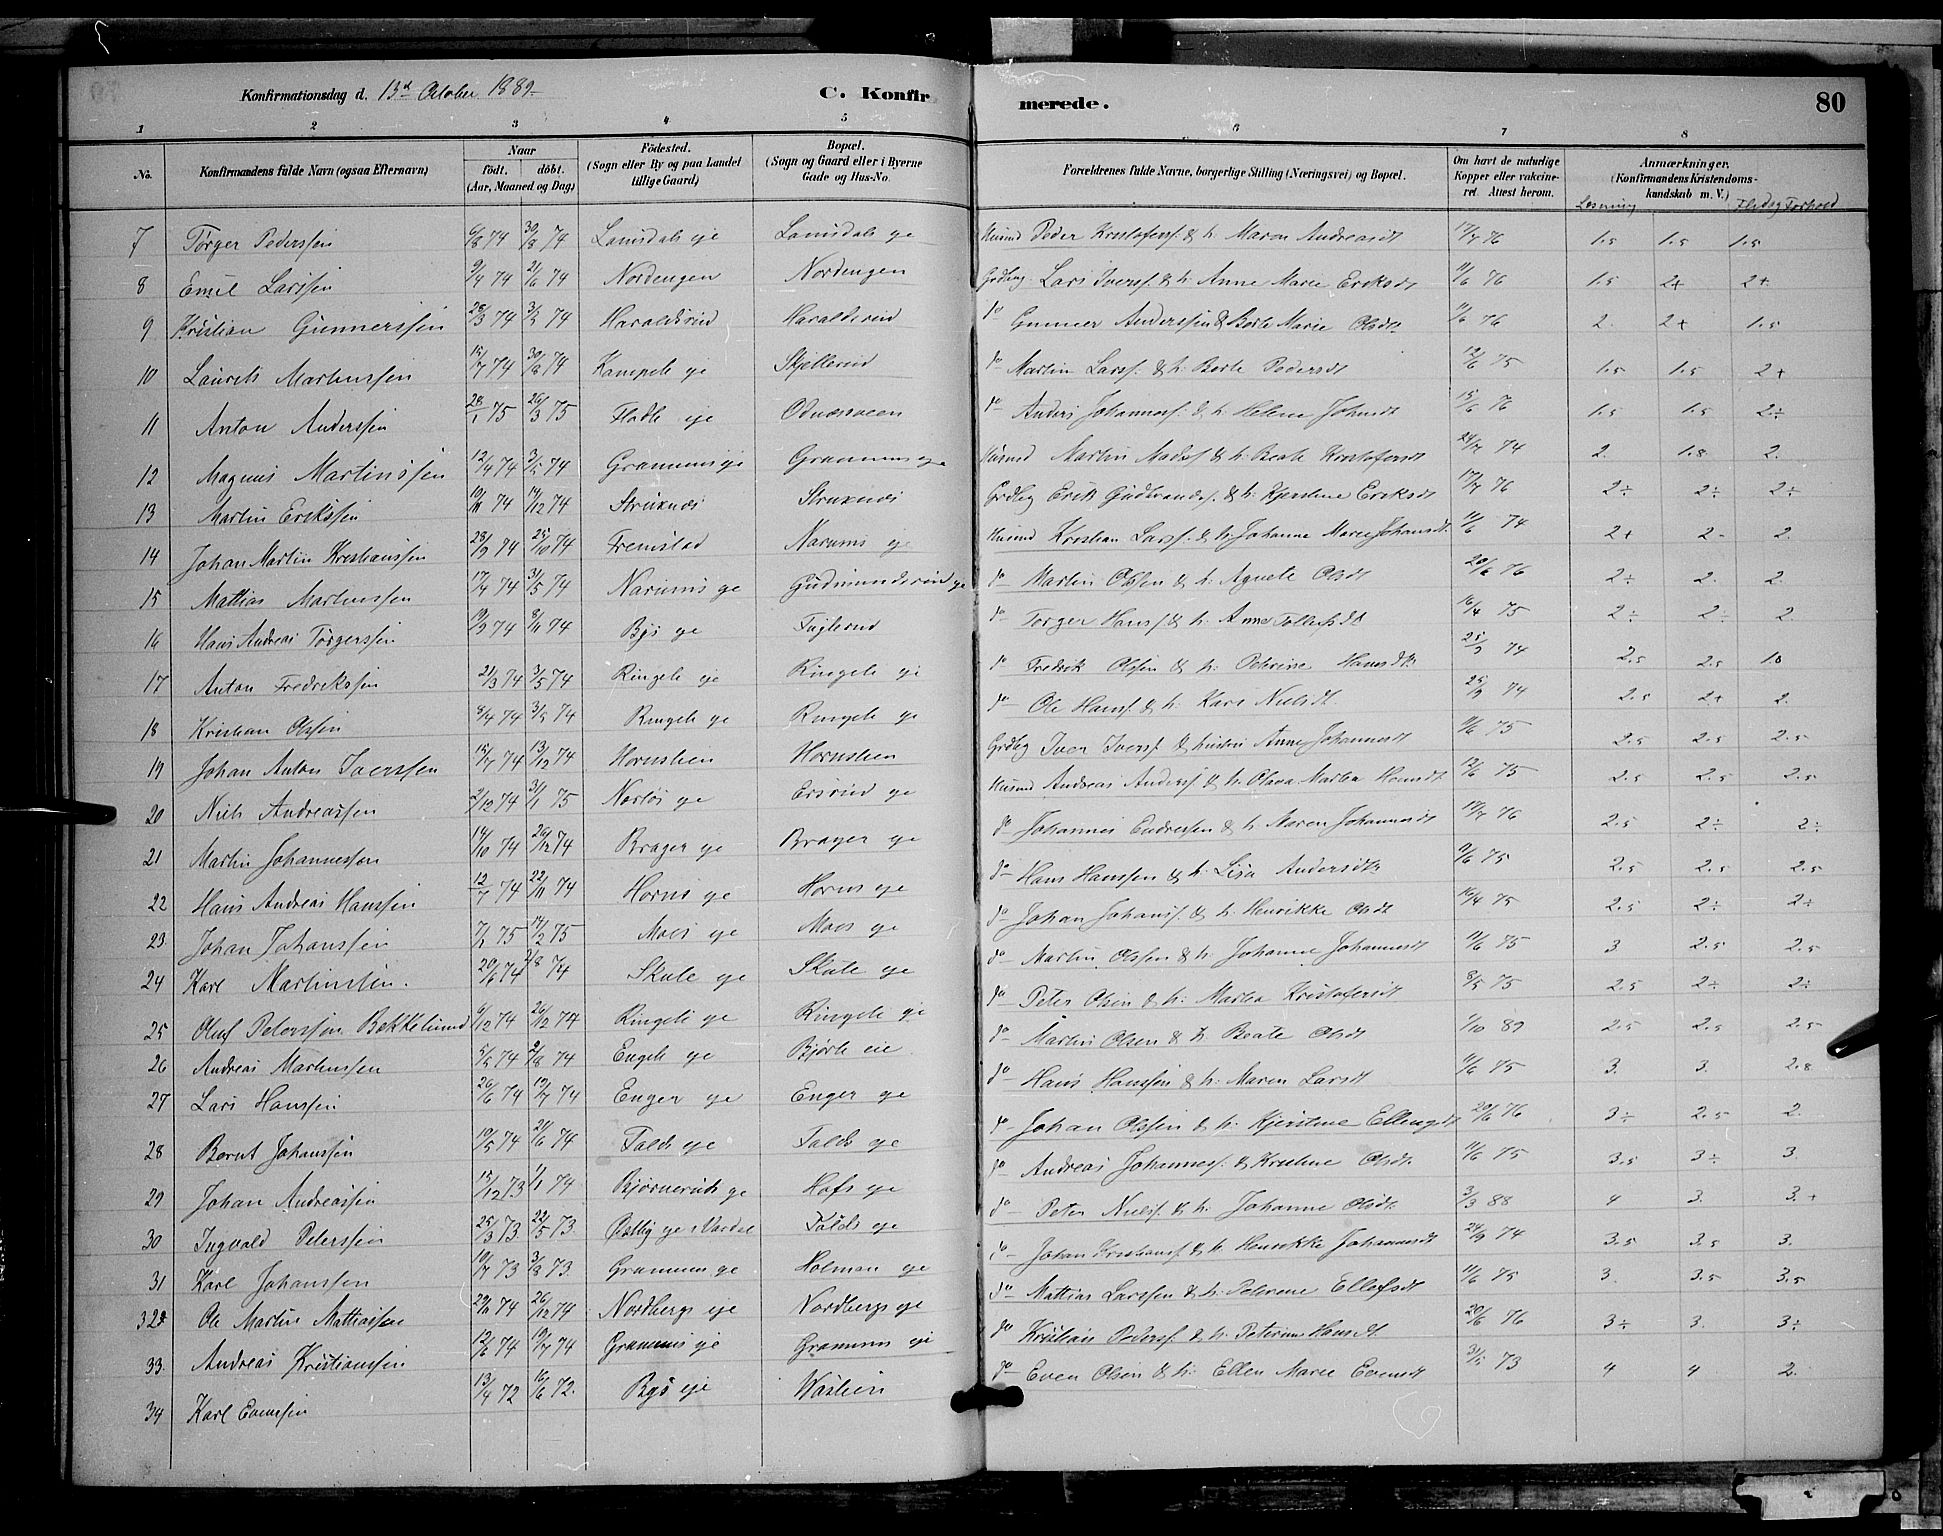 Konfirmationsdag d. 13d October 1889. C. Konfirmerede. 80
1 2 3 4 5 6 7 8
No. Konfirmandens fulde Navn (ogsaa Efternavn) Naar födt. döbt. (Aar, Maaned og Dag) Födested. (Sogn eller By og paa Landet tillige Gaard) Bopæl. (Sogn og Gaard eller i Byerne Gade og Hus-No. Forældrenes fulde Navne, borgerlige Stilling (Næringsvei) og Bopæl. Om havt de naturlige Kopper eller vakcineret. Attest herom. Anmærkninger. (Konfirmandens Kristendomskundskab m. V.)
Læsning Flid og Forhold
7 Törger Pederssen 6/8 74 30/8 74 Lønsdals eje Lønsdals eje Husmd Peder Kristofers. & h. Maren Andreasdt 17/7 76 1.5 1.5 1.5
8 Emil Larssen 9/4 74 21/6 74 Nordengen Nordengen Grdbrg. Lars Iverss. & h. Anne Marie Eriksdt 11/6 76 1.5 2+ 2+
9 Kristian Gunnerssen 28/3 74 3/5 74 Haraldsrud Haraldsrud do Gunner Anderssen & Berte Marie Olsdt. 11/6 76 2. 2+ 1.5
10 Laurits Martinssen 15/7 74 30/8 74 eje Skjellerud do Martin Larss. & h. Berte Pedersdt 12/6 75 1.5 1.5 2+
11 Anton Anderssen 28/1 75 26/3 75 Fladle eje do Anders Johanness. & h. Helene Johnsdt 15/6 76 1.5 1.5 2÷
12 Magnus Martinssen 12/4 74 3/5 74 Grønnums eje Grønnums eje Husmd Martin Madss. & h. Beate Kristofersdt 24/7 74 2. 1.8 2.
13 Martin Erikssen 19/11 74 14/12 74 Struxnæs Struxnæs Grdbrg Erik Gudbrands. & h. Kjerstine Eriksdt 17/7 76 2÷ 2÷ 2÷
14 Johan Martin Kristianssen 28/9 74 25/10 74 Fremstad Narums eje Husmd Kristian Larss. & h. Johanne Marie Johansdt. 11/6 74 2+ 2- 2.
15 Mattias Martinssen 17/4 74 31/5 74 Narums eje Gudmundsrud eje do Martin Olssen & h. Agnete Olsdt 20/6 76 2÷ 2. 2.
16 Hans Andreas Törgerssen 19/9 74 8/11 74 Bjs eje Fuglerud do Törger Hanss. & h. Anne Tollefsdt 16/4 75 2÷ 2÷ 2.
17 Anton Fredrikssen 21/3 74 3/5 74 Ringeli eje Ringeli eje do Fredrik Olssen & h. Petrine Hansdt. 25/9 74 2.5 2.5 1.8
18 Kristian Olssen 8/4 74 3/5 74 Ringeli eje Ringeli eje do Ole Hanss. & h. Kari Nielsdt. 25/9 74 2.5 2+ 2.
19 Johan Anton Iverssen 15/7 74 13/12 74 Hornslien Hornslien Grdbrg Iver Iverss. & hustru Anne Johannesdt 11/6 75 2.5 2.5 2.5
20 Niels Andreassen 2/12 74 3/1 75 eje Ersrud eje Husmd Andreas Anderss. & h. Olava Martea Hansdt 12/6 75 2.5 2.5 2.5
21 Martin Johannessen 14/10 74 26/12 74 Brager eje Brager eje do Johannes Endressen & h. Maren Johannesdt 17/7 76 2.5 2÷ 2÷
22 Hans Andreas Hanssen 12/7 74 22/11 74 Horns eje Horns eje do Hans Hanssen & h. Lisa Andersdt. 9/6 75 2.5 2.5 2.5
23. Johan Johanssen 7/1 75 14/2 75 Moes eje Moes eje do Johan Johanss. & h. Henrikke Olsdt 16/4 75 2.5 2÷ 2÷
24 Karl Martinssen. 20/6 74 2/8 74 Skute eje Skute eje do Martin Olssen & h. Johanne Johannesdt 11/6 75 3. 2.5 2.5
25 Oluf Peterssen Bekkelund 6/12 74 26/12 74 Ringeli eje Ringeli eje do Peter Olsen & h. Martea Kristofersdt 8/5 75 2.5 2÷ 2÷
26 Andreas Martinssen 5/6 74 2/8 74 Engeli eje Bjørli eie. do Martin Olsen & h. Beate Olsdt 1/10 89 2.5 2.5 2.5
27 Lars Hanssen 26/6 74 19/7 74 Enger eje Enger eje do Hans Hanssen & h. Maren Larsdt 11/6 75 3. 3. 2.8
28 Bernt Johanssen 19/5 74 21/6 74 Falds eje Falds eje do Johan Olssen & h. Kjerstine Ellingsdt 20/6 76 3÷ 2.5 2.
29 Johan Andreassen 15/12 73 1/1 74 Bjørneruds eje Hofs eje do Andreas Johanness. & Kristine Olsdt. 11/6 75 3.5 3÷ 3.
30 Ingvald Peterssen 25/3 73. 22/5 73. eje i Vardal Falds eje do Peter Nielss. & h. Johanne Olsdt. 3/3 88 4 3. 3.+
31 Karl Johanssen 19/7 73 3/8 73. Grønnum eje Holmen eje do Johan Kristianss. & h. Henrikke Johannesdt 24/9 74 3.5 3.5 3.
32 Ole Martin Mattiassen 29/11 74 26/12 74 Nordbergs eje Nordbergs eje do Mattias Larssen & h. Petrine Ellefsdt 11/6 75 3. 3.5 3.5
33. Andreas Kristianssen 12/6 74 19/7 74 Grønnums eje Grønnum eje do Kristian Pederss. & h. Peterine Hansdt. 20/6 76 3÷ 3. 3÷
34 Karl Evenssen 13/4 72 16/6 72. Bjs eje Waslien do Even Olsen & h. Ellen Marie Evensdt 31/5 73 4 4 2.